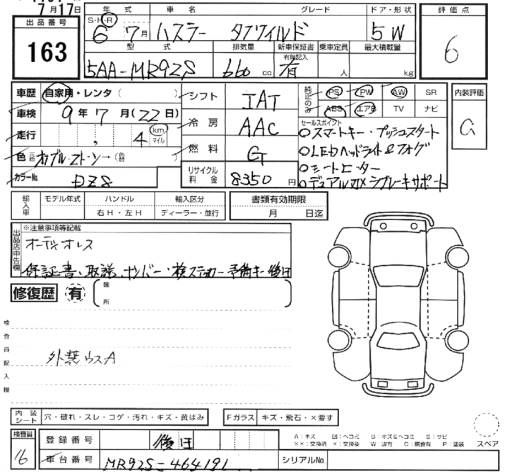 7月17日
出品番号
163
年式 車名 グレード ドア・形状
S・H・R 6年 7月 ハスラー タフワイルド 5W
型式 排気量 新車保証書 有償記入 乗車定員 最大積載量
5AA-MR92S 660cc 有 人 kg
評価点
6
車歴 自家用・レンタ( )
車検 9年7月(22日)
走行 4 km マイル
色
カラーNo DZS
シフト IAT
冷房 AAC
燃料 G
リサイクル料金 8350円
純正のみ PS PW AW SR
ABS エアB TV ナビ
セールスポイント
○スマートキー・プッシュスタート
○LEDヘッドライト&フォグ
○シートヒーター
○デュアルカメラブレーキサポート
内装評価
輸入車 モデル年式 ハンドル 輸入区分
右H・左H ディーラー・並行
書類有効期限
月 日迄
出品店申告欄
※注意事項等記載
オーディオレス
保証書・取説・ナンバー・検ステッカー・予備キー後日
修復歴 有 箇所
検査員記入欄
外装ウスA
内装シート 穴・破れ・スレ・コゲ・汚れ・キズ・黄ばみ
Fガラス キズ・飛石・X要す
検査員
16
登録番号 後日
車台番号 MR92S-464191
シリアルNo.
スペア